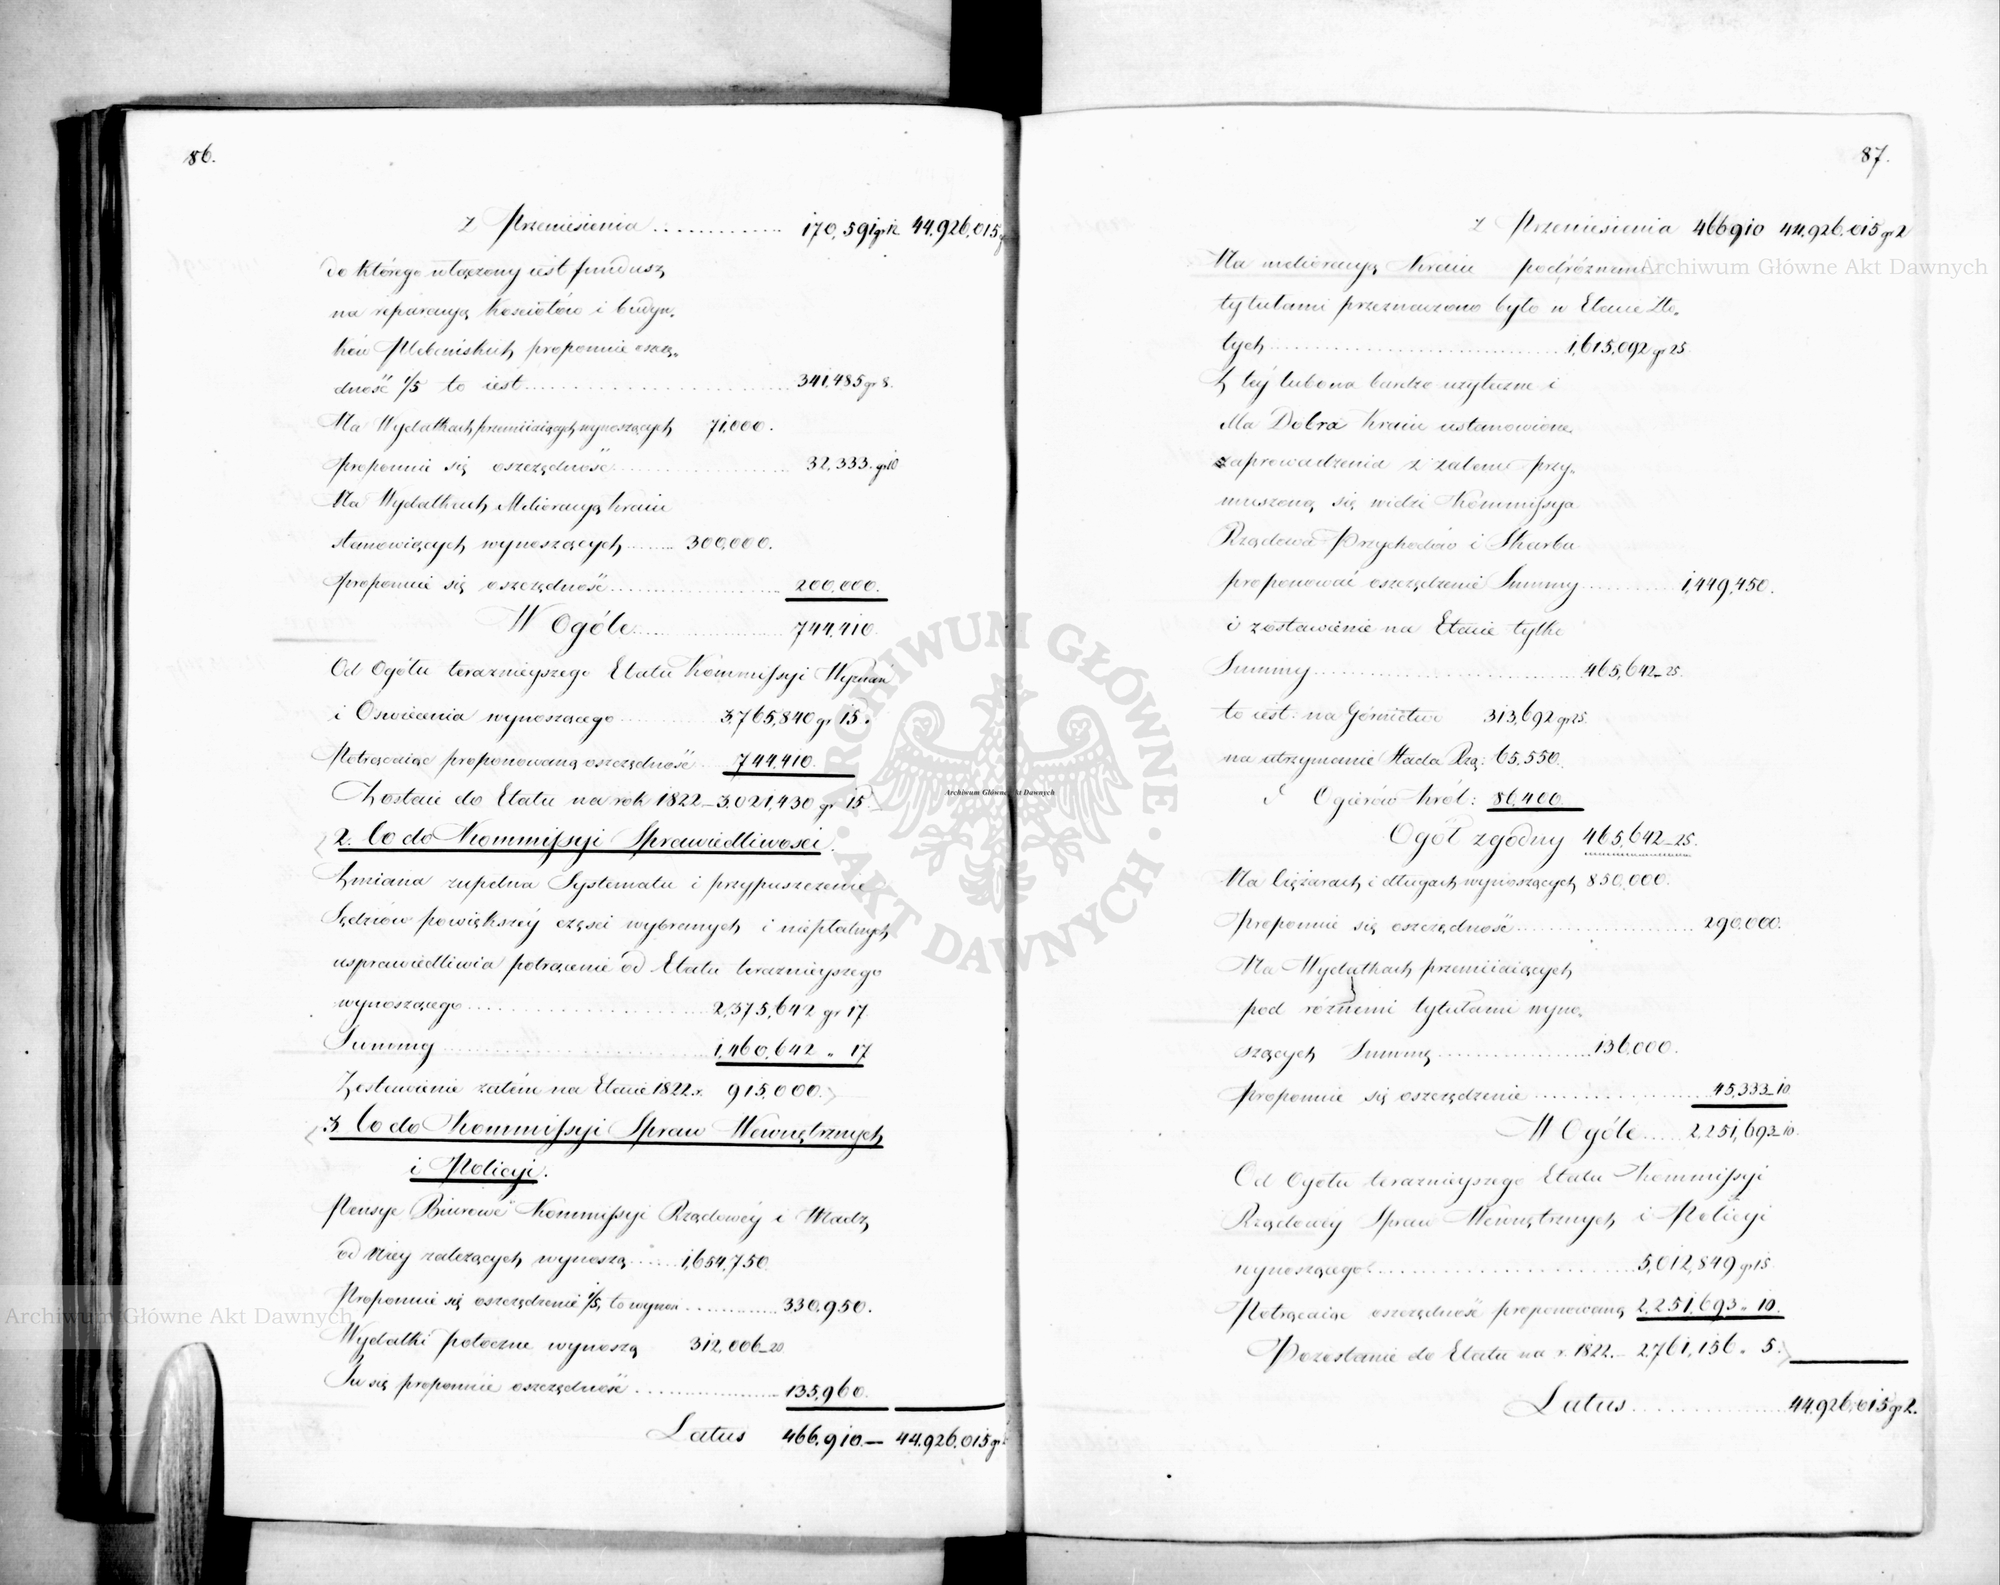 86.
z Przeniesienia ............ 170,591 gr 12 44,926,015 g
do którego włączony iest fundusz
na reparacyą Kościołów i budyn-
ków Plebańskich, proponuie oszczę-
dność 1/5 to iest ............ 341,485 gr 8.
Na Wydatkach przemiiaiących wynoszących 71,000.
proponuie się oszczędność ............ 32,333. gr 10
Na Wydatkach Melioracyą kraiu
stanowiących wynoszących ........ 300,000.
proponuie się oszczędność ............ 200,000.
W Ogóle ............ 744,410.
Od Ogółu teraznieyszego Etatu Kommissyi Wyznań
i Oświecenia wynoszącego ........ 3,765,840 gr 15.
Potrącaiąc proponowaną oszczędność .. 744,410.
Zostaie do Etatu na rok 1822 – 3,021,430 gr 15.
2. Co do Kommissyi Sprawiedliwości.
Zmiana zupełna Systematu i przypuszczenie
Sędziów powiększéy części wybranych i niepłatnych
usprawiedliwia potrącenie od Etatu teraznieyszego
wynoszącego ............ 2,375,642 gr 17.
Summy ............ 1,460,642 " 17
Zostawienie zatém na Etacie 1822 r. 915,000.
3. Co do Kommissyi Spraw Wewnętrznych
i Policyi.
Pensye Biurowe Kommissyi Rządowéy i Władz
od niey zależących wynoszą ...... 1,654,750.
Proponuie się oszczędzenie 1/5, to wynosi ............ 330,950.
Wydatki potoczne wynoszą 312,006_20
Tu się proponuie oszczędność ............ 135,960.
Latus 466,910.— 44,926,015 gr
87.
z Przeniesienia 466910 44,926,015 gr 2
Na melioracyą Kraiu pod różnemi
tytułami przeznaczono było w Etacie Zło-
tych ............ 1,615,092 gr 25.
Z téy lubo na bardzo użyteczne i
dla Dobra kraiu ustanowione
zaprowadzenia z żalem przy-
muszoną się widzi Kommissya
Rządowa Przychodów i Skarbu
proponować oszczędzenie Summy ............ 1,449,450.
i zostawienie na Etacie tylko
Summy ............ 465,642_25.
to iest: na Górnictwo 313,692 gr 25.
na utrzymanie Stada Rzą: 65,550.
d° Ogierów król: 86,400.
Ogół zgodny 465,642_25.
Na Ciężarach i długach wynoszących 850,000.
Proponuie się oszczędność ............ 290,000.
Na Wydatkach przemiiaiących
pod różnemi tytułami wyno-
szących Summę ............ 136,000.
Proponuie się oszczędzenie ............ 45,333_10
W Ogóle ..... 2,251,693_10.
Od Ogółu teraznieyszego Etatu Kommissyi
Rządowéy Spraw Wewnętrznych i Policyi
wynoszącego ............ 5,012,849 gr 15.
Potrącaiąc oszczędność proponowaną 2,251,693 " 10.
Pozostanie do Etatu na r. 1822. – 2,761,156 " 5.
Latus ............ 44,926,015 gr 2.
Archiwum Główne Akt Dawnych
Archiwum Główne Akt Dawnych
Archiwum Główne Akt Dawnych
ARCHIWUM GŁÓWNE AKT DAWNYCH